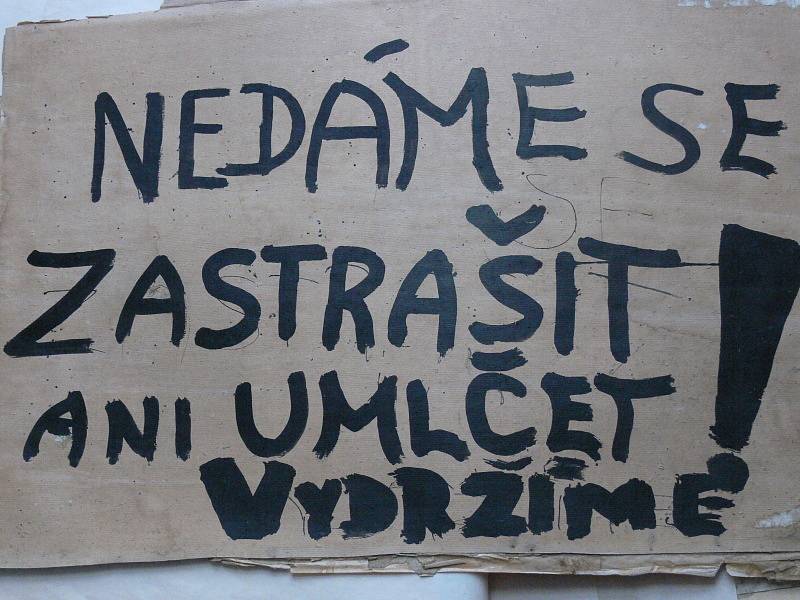 NEDÁME SE
SE
ZASTRAŠIT!
ANI UMLČET
VYDRŽÍME